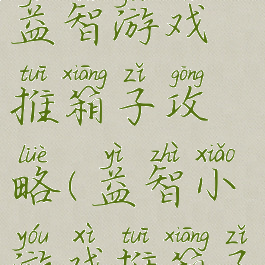 益智游戏
tuī xiāng zǐ gōng
推箱子攻
lüè yì zhì xiǎo
略(益智小
yóu xì tuī xiāng zǐ
游戏推箱子